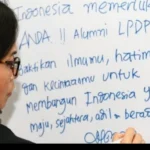 Indonesia memerlu
ANDA !! Alumni LPDP
baktikan ilmumu, hatim
dan kecintaanmu untuk
membangun Indonesia y
maju, sejahtera, adil & bera